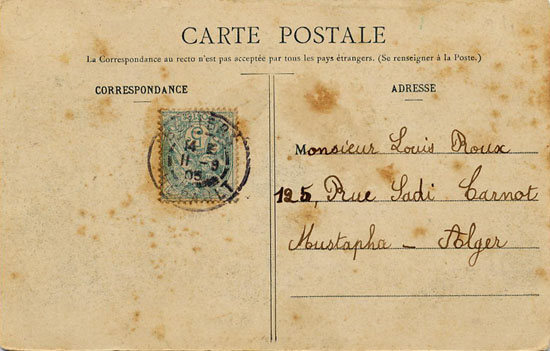 CARTE POSTALE
La Correspondance au recto n'est pas acceptée par tous les pays étrangers. (Se renseigner à la Poste.)
CORRESPONDANCE
ADRESSE
14 E
11 - 9
05
Monsieur Louis Roux
125, Rue Sadi Carnot
Mustapha - Alger